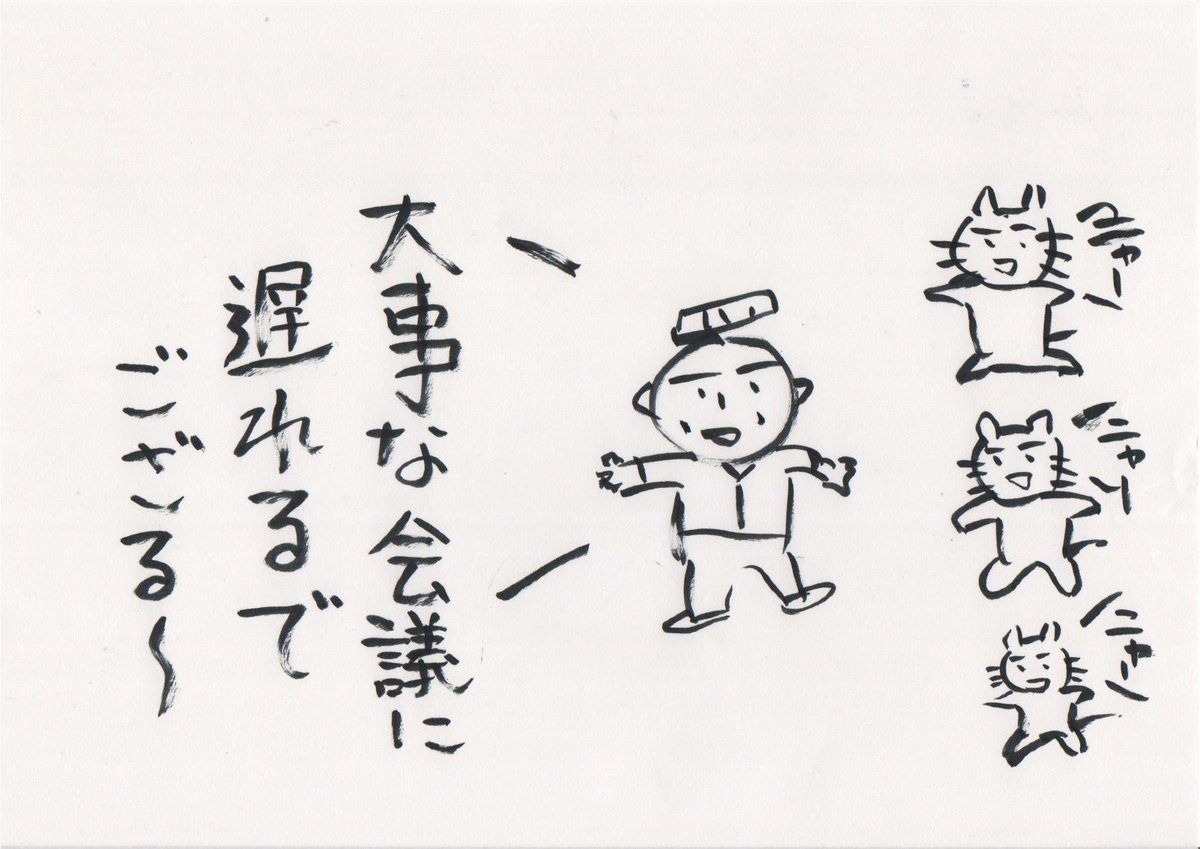 ニャー
ニャー
ニャー
大事な会議に
遅れるで
ござる〜